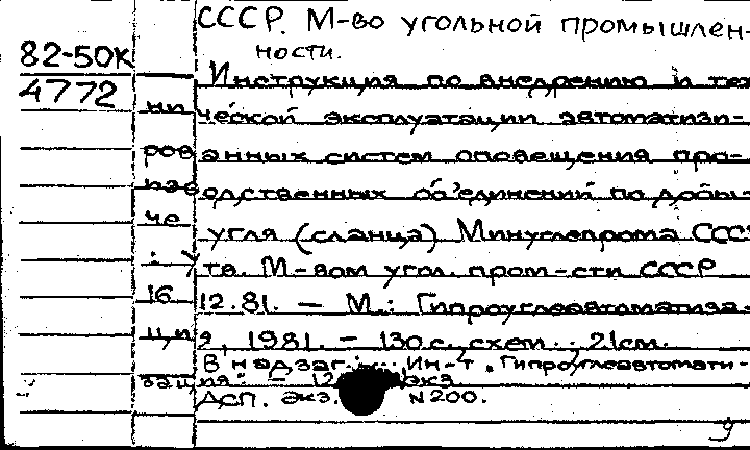 СССР. М-во угольной промышлен-
ности.
82-50К
4772
Инструкция по внедрению и тех
нической эксплуатации автоматизи-
рованных систем оповещения про-
изводственных объединений по добы-
че угля (сланца) Минуглепрома СССР
: Утв. М-вом угол. пром-сти СССР
16.12.81. — М.: Гипроуглеавтоматиза-
ция, 1981. — 130 с., схем.; 21см.
В надзаг.: ... Ин-т "Гипроуглеавтомати-
зация". — 12 экз.
ДСП. Экз. N200.
9